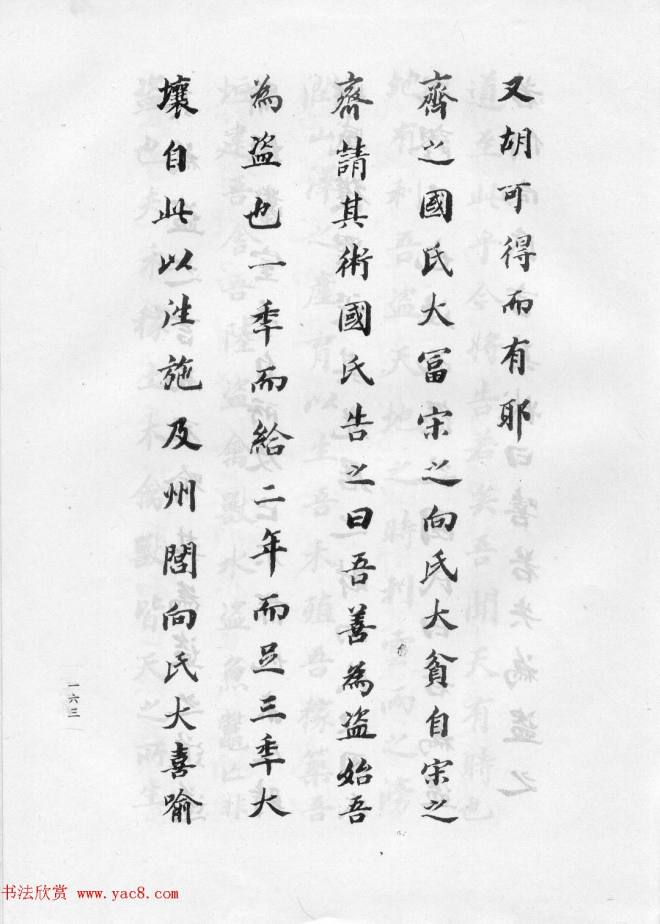 又胡可得而有耶
齊之國氏大冨宋之向氏大貧自宋之
齊請其術國氏告之曰吾善為盜始吾
為盜也一秊而給二年而足三秊大
壤自此以往施及州閭向氏大喜喻
一六三
书法欣赏 www.yac8.com